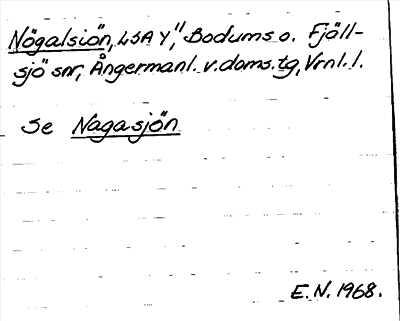 Nögalsiön, LSA Y, "Bodums o. Fjäll-
sjö snr, Ångermanl. v. doms. tg, Vrnl. l.
Se Nagasjön
E. N. 1968.